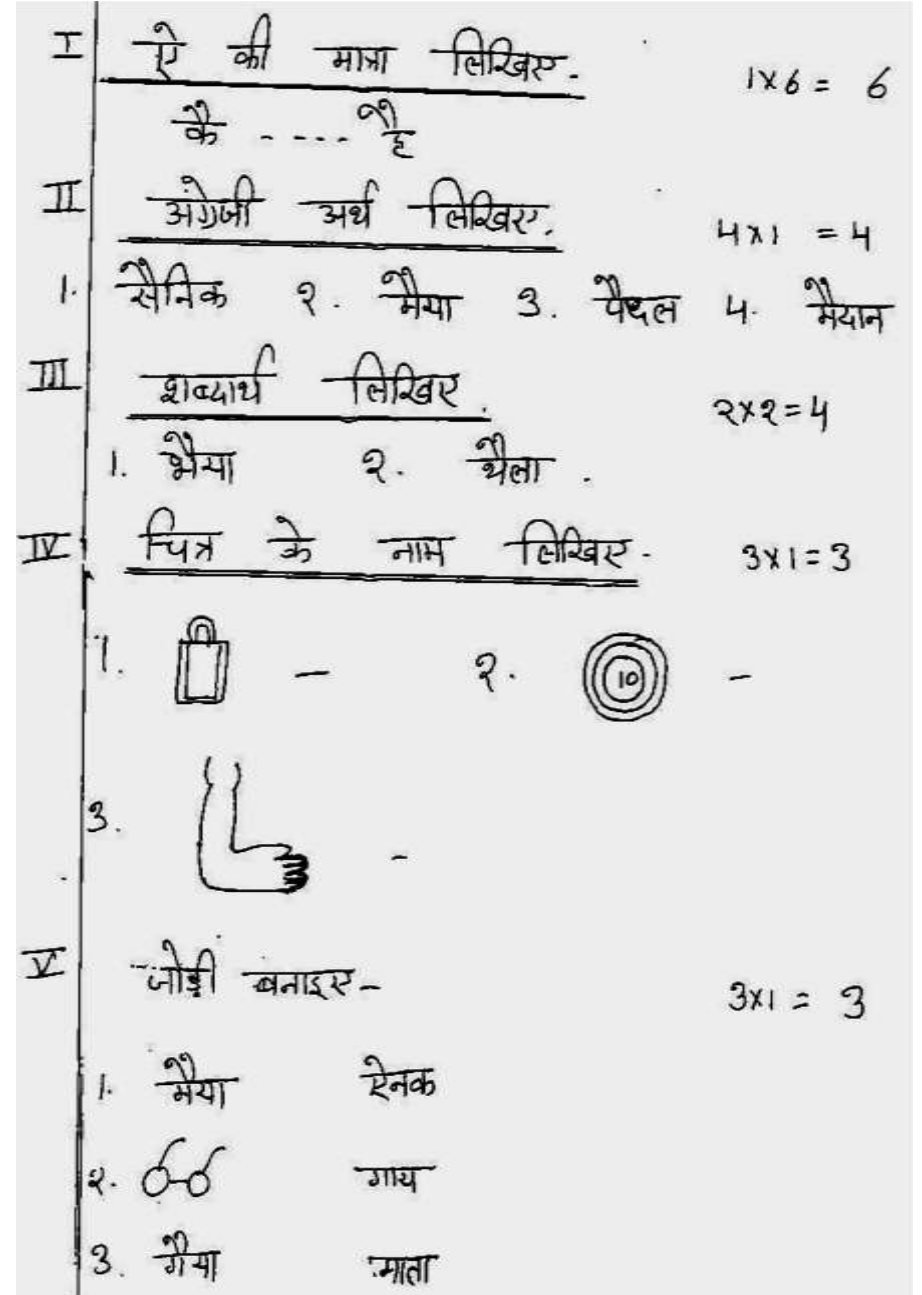 I ऐ की मात्रा लिखिए. 1x6 = 6
कै ---- है
II अंग्रेजी अर्थ लिखिए. 4x1 = 4
1. सैनिक २. मैया 3. पैदल 4. मैदान
III शब्दार्थ लिखिए. २x२=4
1. भैया २. थैला .
IV चित्र के नाम लिखिए - 3x1=3
1. - २. 10 -
3. -
V जोड़ी बनाइए- 3x1 = 3
1. मैया ऐनक
२. गाय
3. गैया माता